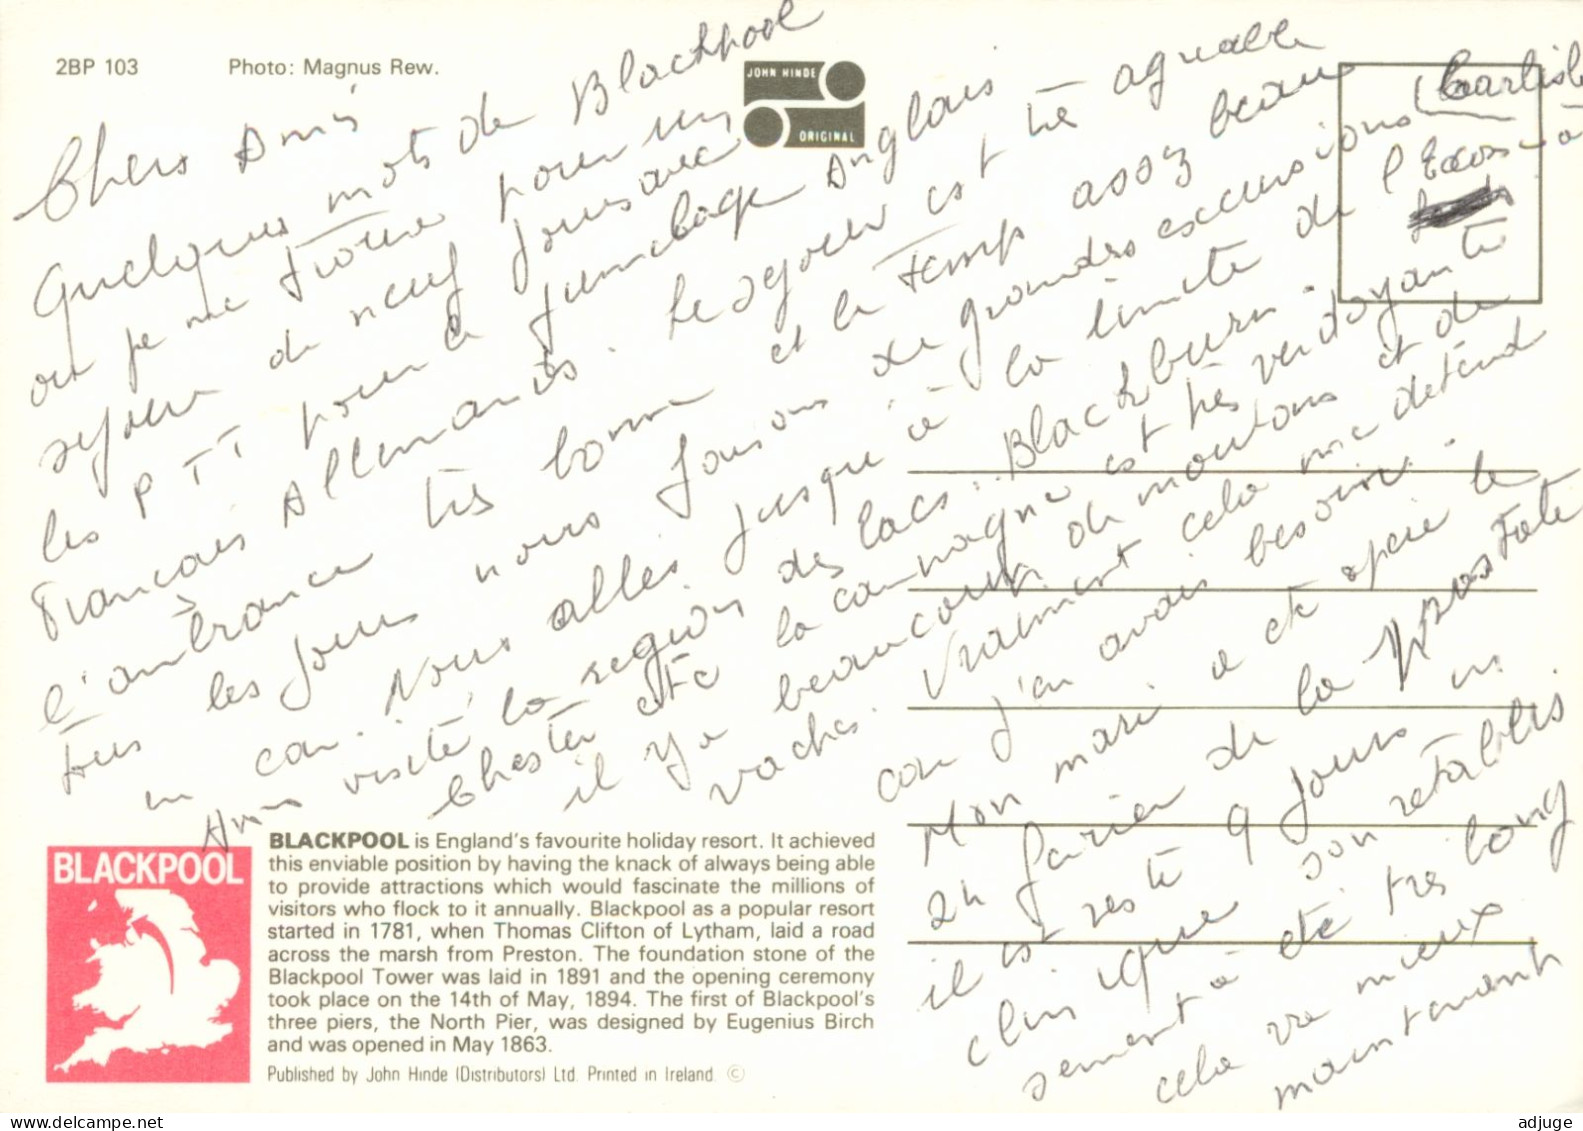 2BP 103
Photo: Magnus Rew.
JOHN HINDE
ORIGINAL
Chers Amis
Quelques mots de Blackpool
ou je me trouve pour un
sejour de neuf jours avec
les PTT pour le jumelage Anglais
Francais Allemands. Le sejour est tré agreable
l'ambiance très bonne et le temp assez beau
tous les jours nous faisons de grandes excursions
en car. Nous alles jusque à la limite de l'Ecosse à (Carlisle
Ann visité la region des lacs. Blackburn.
Chester etc la campagne est très verdoyante
il y a beaucoup de moutons et de
vaches. Vraiment cela me détend
car j'en avais besoin.
Mon mari a eté opere le
24 Janvier de la prostate
il est resté 9 jours en
clinique son retablis
sement à été très long
cela va mieux
maintenant
BLACKPOOL
BLACKPOOL is England's favourite holiday resort. It achieved
this enviable position by having the knack of always being able
to provide attractions which would fascinate the millions of
visitors who flock to it annually. Blackpool as a popular resort
started in 1781, when Thomas Clifton of Lytham, laid a road
across the marsh from Preston. The foundation stone of the
Blackpool Tower was laid in 1891 and the opening ceremony
took place on the 14th of May, 1894. The first of Blackpool's
three piers, the North Pier, was designed by Eugenius Birch
and was opened in May 1863.
Published by John Hinde (Distributors) Ltd. Printed in Ireland. ©
adjuge